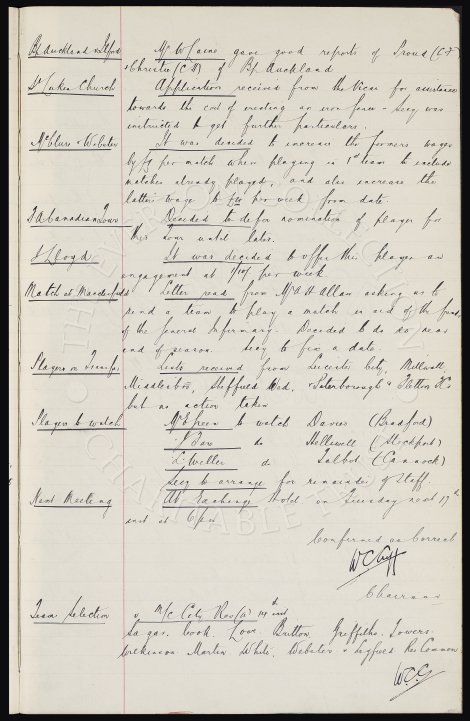 Bp Auckland & Ilford Mr W Caine gave good reports of Proud (C F)
& Christie (C H) of Bp. Auckland
St Lukes Church Application received from the Vicar for assistance
towards the cost of erecting an iron fence - Secy was
instructed to get further particulars.
McClure & Webster It was decided to increase the formers wages
by £1 per match when playing in 1st team to include
matches already played, and also increase the
latters wage to per week from date.
F A Canadian Tour Decided to defer nomination of player for
this Tour until later.
J Lloyd It was decided to offer this player an
engagement at per week
Match at Macclesfield Letter read from Mr A H Allan asking us to
send a team to play a match in aid of the funds
of the General Infirmary. Decided to do so near
end of season. Secy to fix a date.
Players on Transfer Lists received from Leicester City, Millwall,
Middlesbro, Sheffield Wed, "Peterborough & Fletton Utd"
but no action taken
Players to watch Mr E Green to watch Davies (Bradford)
" J do Helliwell (Stockport)
" L. Weller do Talbot (Cannock)
Secy to arrange for remainder of staff.
Next Meeting At Exchange Hotel on Tuesday next 17th
inst at 6 pm
Confirmed as Correct
W C Cuff
Chairman
Team Selection v. M/c City Res (a) 14th inst
Sagar. Cook. Low. Britton. Griffiths. Towers.
Wilkinson. Martin. White. Webster & Legfied Res Common
W.C.C